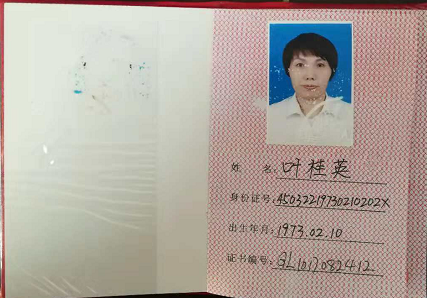 姓 名:叶桂英
身份证号:45032219730210202X
出生年月:1973.02.10
证书编号:GL1017082412